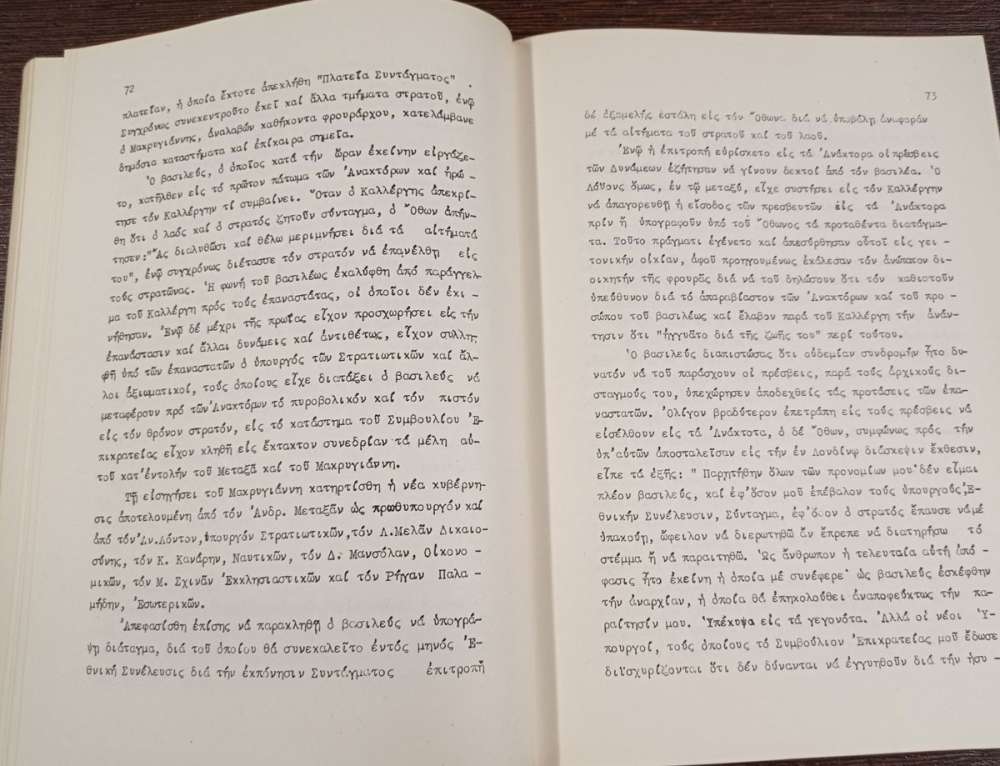 72
πλατεῖαν, ἡ ὁποία ἔκτοτε ἀπεκλήθη "Πλατεῖα Συντάγματος".
Συγχρόνως συνεκεντροῦτο ἐκεῖ καί ἄλλα τμήματα στρατοῦ, ἐνῷ
ὁ Μακρυγιάννης, ἀναλαβών καθήκοντα φρουράρχου, κατελάμβανε
δημόσια καταστήματα καί ἐπίκαιρα σημεῖα.
Ὁ βασιλεύς, ὁ ὁποῖος κατά τήν ὥραν ἐκείνην εἰργάζε-
το, κατῆλθεν εἰς τό πρῶτον πάτωμα τῶν Ἀνακτόρων καί ἠρώ-
τησε τόν Καλλέργην τί συμβαίνει. Ὅταν ὁ Καλλέργης ἀπεκρί-
θη ὅτι ὁ λαός καί ὁ στρατός ζητοῦν σύνταγμα, ὁ Ὄθων ἀπήν-
τησεν:"Ἄς διαλυθῶσι καί θέλω μεριμνήσει διά τά αἰτήματά
του", ἐνῷ συγχρόνως διέτασσε τόν στρατόν νά ἐπανέλθῃ εἰς
τούς στρατῶνας. Ἡ φωνή τοῦ βασιλέως ἐκαλύφθη ἀπό παράγγελ-
μα τοῦ Καλλέργη πρός τούς ἐπαναστάτας, οἱ ὁποῖοι δέν ἐκι-
νήθησαν. Ἐνῷ δέ μέχρι τῆς πρωΐας εἶχον προσχωρήσει εἰς τήν
ἐπανάστασιν καί ἄλλαι δυνάμεις καί ἀντιθέτως, εἶχον συλλη-
φθῆ ὑπό τῶν ἐπαναστατῶν ὁ ὑπουργός τῶν Στρατιωτικῶν καί ἄλ-
λοι ἀξιωματικοί, τούς ὁποίους εἶχε διατάξει ὁ βασιλεύς νά
μεταφέρουν πρό τῶν Ἀνακτόρων τό πυροβολικόν καί τόν πιστόν
εἰς τόν θρόνον στρατόν, εἰς τό κατάστημα τοῦ Συμβουλίου Ἐ-
πικρατείας εἶχον κληθῆ εἰς ἔκτακτον συνεδρίαν τά μέλη αὐ-
τοῦ κατ'ἐντολήν τοῦ Μεταξᾶ καί τοῦ Μακρυγιάννη.
Τῇ εἰσηγήσει τοῦ Μακρυγιάννη κατηρτίσθη ἡ νέα κυβέρνη-
σις ἀποτελουμένη ἀπό τόν Ἀνδρ. Μεταξᾶν ὡς πρωθυπουργόν καί
ἀπό τόν Ἀν.Λόντον,ὑπουργόν Στρατιωτικῶν,τόν Λ.Μελᾶν Δικαιο-
σύνης, τόν Κ. Κανάρην, Ναυτικῶν, τόν Δ. Μανσόλαν, Οἰκονο-
μικῶν, τόν Μ. Σχινᾶν Ἐκκλησιαστικῶν καί τόν Ρήγαν Παλα-
μήδην, Ἐσωτερικῶν.
Ἀπεφασίσθη ἐπίσης νά παρακληθῇ ὁ βασιλεύς νά ὑπογρά-
ψῃ διάταγμα, διά τοῦ ὁποίου θά συνεκαλεῖτο ἐντός μηνός Ἐ-
θνική Συνέλευσις διά τήν ἐκπόνησιν Συντάγματος ἐπιτροπή
73
δέ ἑξαμελής ἐστάλη εἰς τόν Ὄθωνα διά νά ὑποβάλῃ ἀναφοράν
μέ τά αἰτήματα τοῦ στρατοῦ καί τοῦ λαοῦ.
Ἐνῷ ἡ ἐπιτροπή εὑρίσκετο εἰς τά Ἀνάκτορα οἱ πρέσβεις
τῶν Δυνάμεων ἐζήτησαν νά γίνουν δεκτοί ἀπό τόν βασιλέα. Ὁ
Λάυονς ὅμως, ἐν τῷ μεταξύ, εἶχε συστήσει εἰς τόν Καλλέργην
νά ἀπαγορευθῇ ἡ εἴσοδος τῶν πρεσβευτῶν εἰς τά Ἀνάκτορα
πρίν ἤ ὑπογραφοῦν ὑπό τοῦ Ὄθωνος τά προταθέντα διατάγμα-
τα. Τοῦτο πράγματι ἐγένετο καί ἀπεσύρθησαν οὗτοι εἰς γει-
τονικήν οἰκίαν, ἀφοῦ προηγουμένως ἐκάλεσαν τόν ἀνώτατον δι-
οικητήν τῆς φρουρᾶς διά νά τοῦ δηλώσουν ὅτι τόν καθιστοῦν
ὑπεύθυνον διά τό ἀπαραβίαστον τῶν Ἀνακτόρων καί τοῦ προ-
σώπου τοῦ βασιλέως καί ἔλαβον παρά τοῦ Καλλέργη τήν ἀπάν-
τησιν ὅτι "ἠγγυᾶτο διά τῆς ζωῆς του" περί τούτου.
Ὁ βασιλεύς διαπιστώσας ὅτι οὐδεμίαν συνδρομήν ἦτο δυ-
νατόν νά τοῦ παράσχουν οἱ πρέσβεις, παρά τούς ἀρχικούς δι-
σταγμούς του, ὑπεχώρησεν ἀποδεχθείς τάς προτάσεις τῶν ἐπα-
ναστατῶν. Ὀλίγον βραδύτερον ἐπετράπη εἰς τούς πρέσβεις νά
εἰσέλθουν εἰς τά Ἀνάκτοτα, ὁ δέ Ὄθων, συμφώνως πρός τήν
ὑπ'αὐτῶν ἀποσταλεῖσαν εἰς τήν ἐν Λονδίνῳ διάσκεψιν ἔκθεσιν,
εἶπε τά ἑξῆς: " Παρητήθην ὅλων τῶν προνομίων μου·δέν εἶμαι
πλέον βασιλεύς, καί ἐφ'ὅσον μοῦ ἐπέβαλον τούς ὑπουργούς,Ἐ-
θνικήν Συνέλευσιν, Σύνταγμα, ἐφ'ὅσον ὁ στρατός ἔπαυσε νά μέ
ὑπακούῃ, ὤφειλον νά διερωτηθῶ ἄν ἔπρεπε νά διατηρήσω τό
στέμμα ἤ νά παραιτηθῶ. Ὡς ἄνθρωπον ἡ τελευταία αὐτή ἀπό-
φασις ἦτο ἐκείνη ἡ ὁποία μέ συνέφερε· ὡς βασιλεύς ἐσκέφθην
τήν ἀναρχίαν, ἡ ὁποία θά ἐπηκολούθει ἀναποφεύκτως τήν πα-
ραίτησίν μου. Ὑπέκυψα εἰς τά γεγονότα. Ἀλλά οἱ νέοι Ὑ-
πουργοί, τούς ὁποίους τό Συμβούλιον Ἐπικρατείας μοῦ ἔδωσε
διϊσχυρίζονται ὅτι δέν δύνανται νά ἐγγυηθοῦν διά τήν ἡσυ-